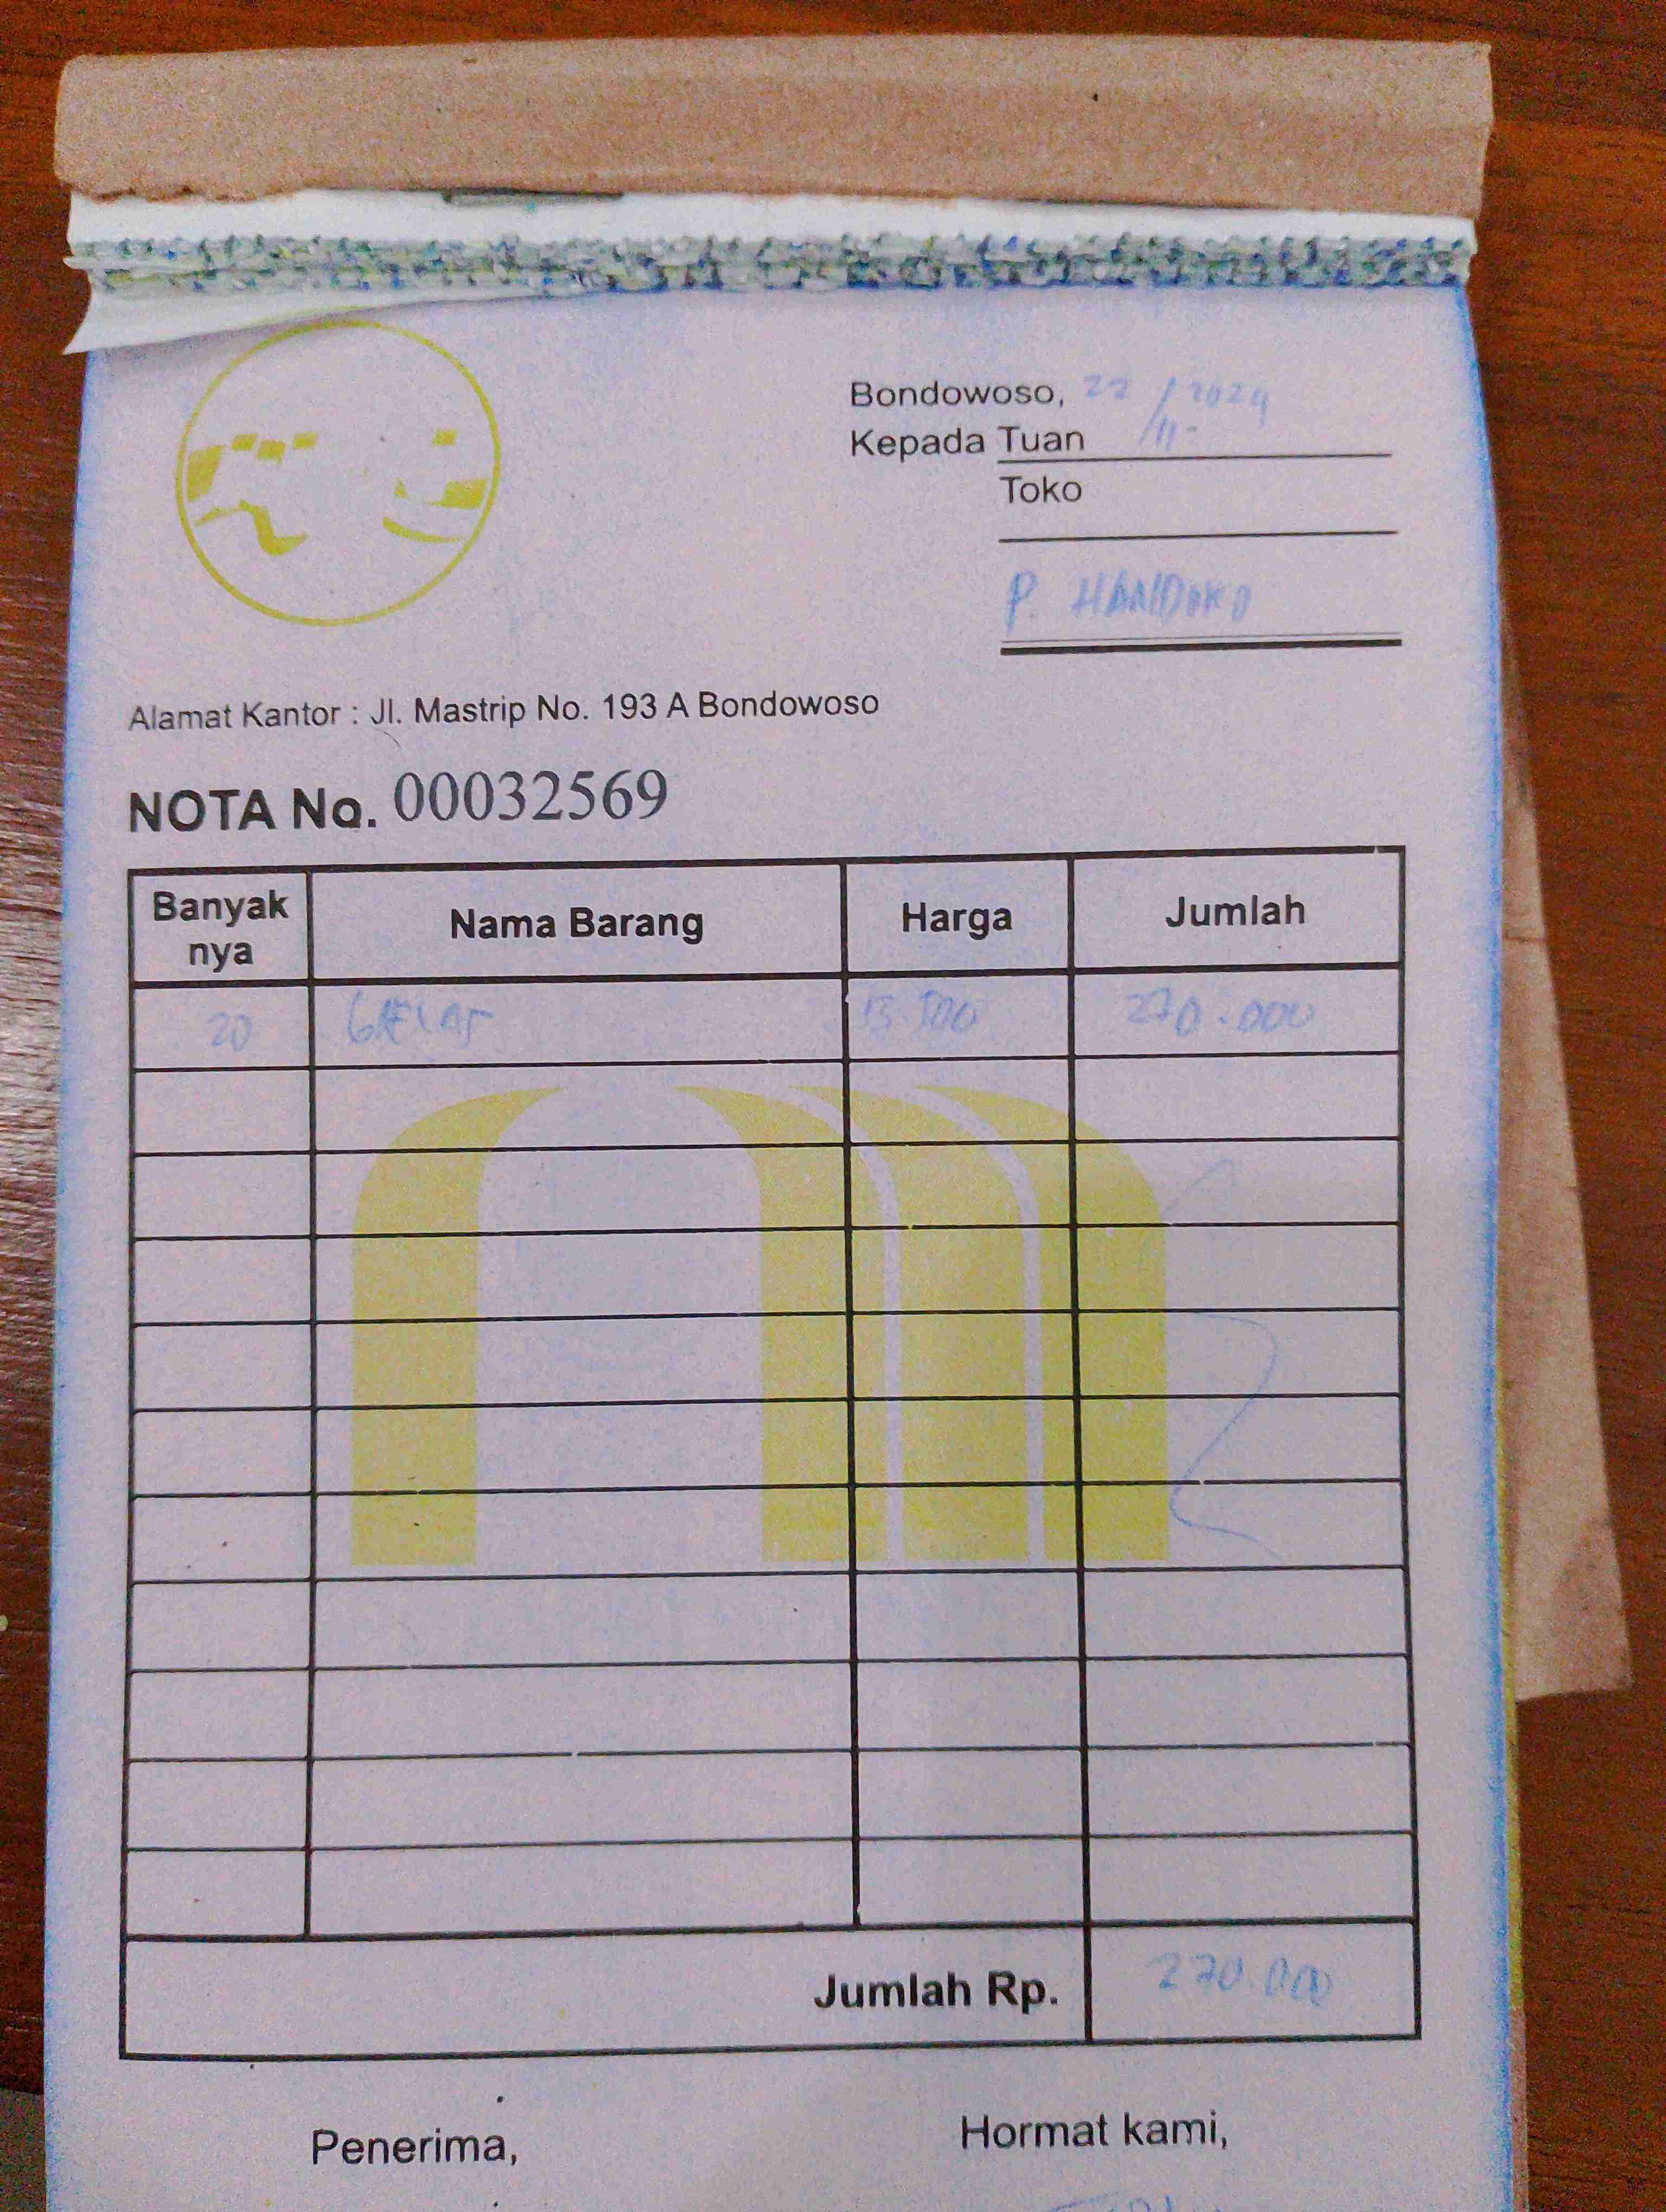 Bondowoso, 22/11-2024
Kepada Tuan
Toko
P. HANDOKO
Alamat Kantor : Jl. Mastrip No. 193 A Bondowoso
NOTA No. 00032569
Banyak nya Nama Barang Harga Jumlah
20 GELAS 13.500 270.000
Jumlah Rp. 270.000
Penerima, Hormat kami,